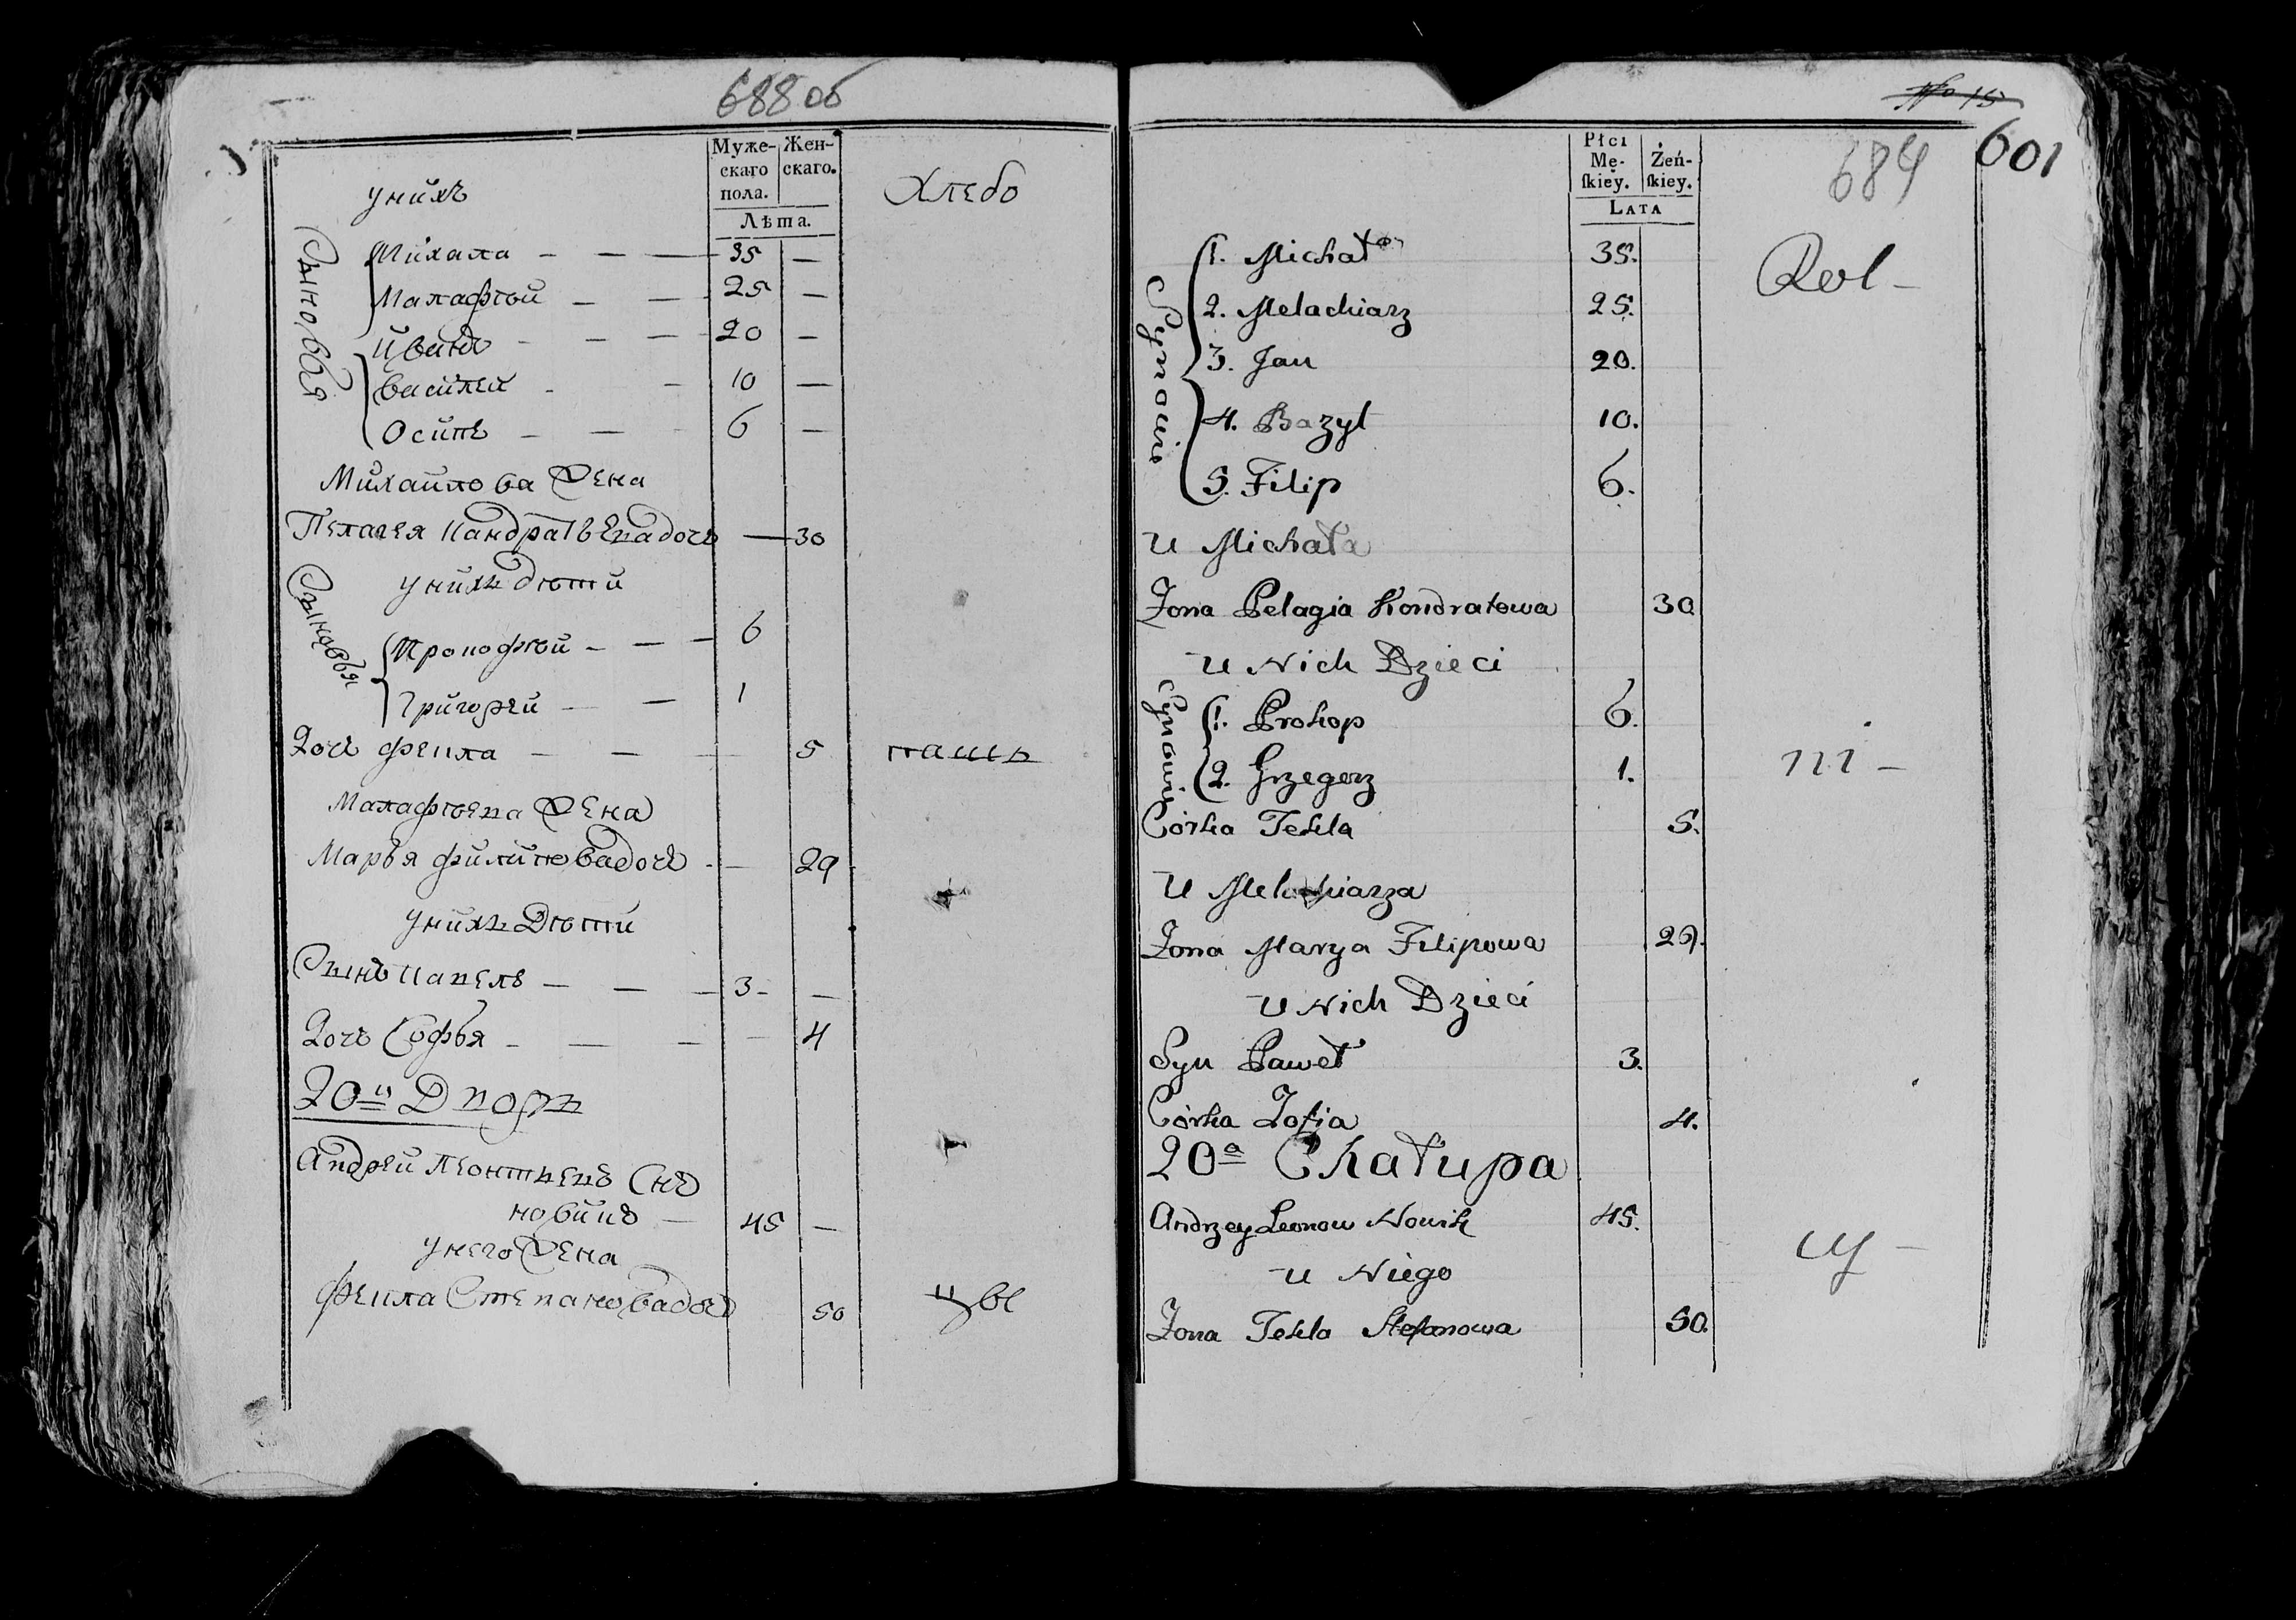 688 об
Муже-
скаго
пола.
Жен-
скаго.
Лѣта.
унихъ
Хлебо
Сыновья
Михаила — — — 35 —
Малафѣй — — 25 —
Иванъ — — — 20 —
Василей — — 10 —
Осипъ — — 6 —
Михайлова Жена
Пелагея Кандратьевадочь — 30
унихъ дѣти
Сыновья
Прокофѣй — — — 6
Григорей — — 1
Дочь Фекла — — 5
пашь
Малафѣева Жена
Марья Филиповадочь — 29
унихъ Дѣти
Сынъ Павелъ — — — 3 —
Дочь Софья — — — 4
20й Дворъ
Андрей Леонтьевъ Снъ
новикъ — 45 —
унего Жена
Фекла Степановадочь 50
цвы
No 15
601
684
Płci
Mę-
ſkiey.
Żeń-
ſkiey.
LATA
Synowie
1. Michał 35.
Rol-
2. Melachiarz 25.
3. Jan 20.
4. Bazyl 10.
5. Filip 6.
u Michała
Zona Pelagia Kondratowa 30
u Nich Dzieci
Synowie
1. Prokop 6.
2. Grzegorz 1.
ni-
Córka Tekla 5.
u Melachiarza
Zona Marya Filipowa 29.
u Nich Dzieci
Syn Paweł 3.
Córka Zofia 4.
20a Chałupa
Andrzey Leonow Nowik 45.
cy-
u Niego
Zona Tekla Stefanowa 50.